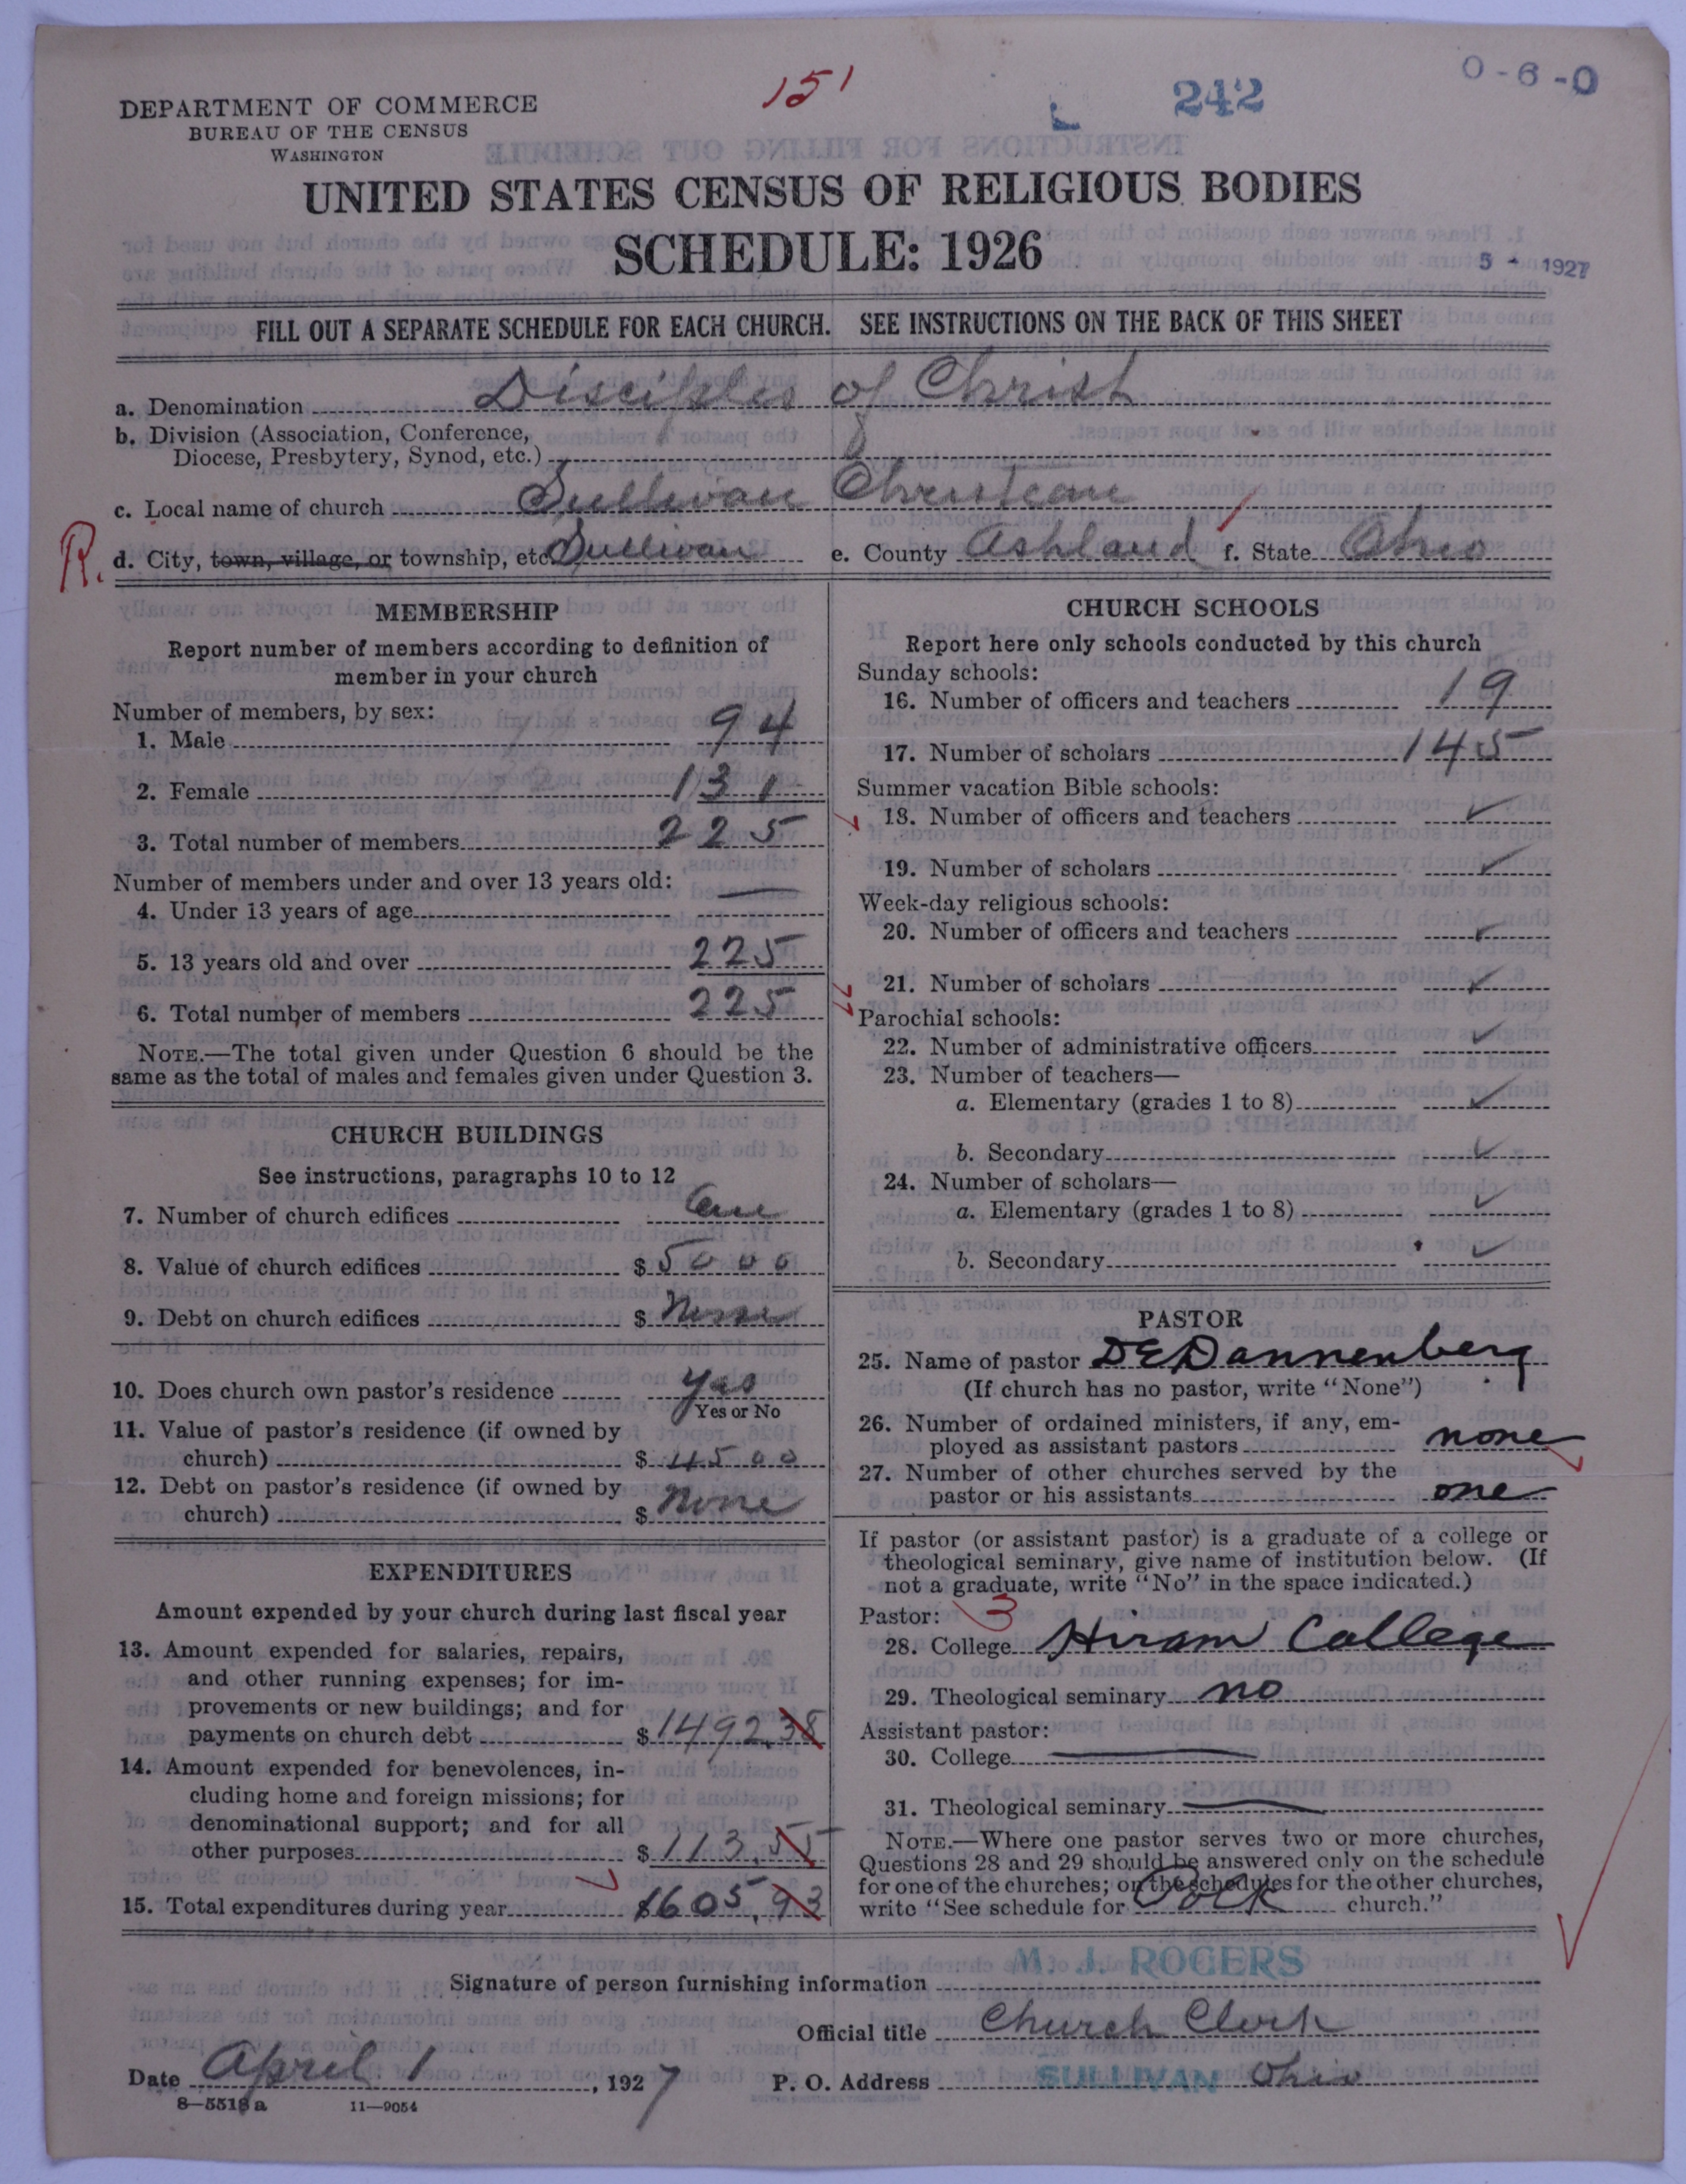 151
242
0-6-0
DEPARTMENT OF COMMERCE
BUREAU OF THE CENSUS
WASHINGTON
UNITED STATES CENSUS OF RELIGIOUS BODIES
SCHEDULE: 1926
5 - 1927
FILL OUT A SEPARATE SCHEDULE FOR EACH CHURCH. SEE INSTRUCTIONS ON THE BACK OF THIS SHEET
a. Denomination Disciples of Christ
b. Division (Association, Conference,
Diocese, Presbytery, Synod, etc.)
c. Local name of church Sullivan Christian
R.
d. City, town, village, or township, etc. Sullivan e. County Ashland f. State Ohio
MEMBERSHIP
Report number of members according to definition of
member in your church
Number of members, by sex:
1. Male 94
2. Female 131
3. Total number of members 225
Number of members under and over 13 years old:
4. Under 13 years of age —
5. 13 years old and over 225
6. Total number of members 225
NOTE.—The total given under Question 6 should be the
same as the total of males and females given under Question 3.
CHURCH BUILDINGS
See instructions, paragraphs 10 to 12
7. Number of church edifices One
8. Value of church edifices $ 5000
9. Debt on church edifices $ None
10. Does church own pastor's residence yes
Yes or No
11. Value of pastor's residence (if owned by
church) $ 4500
12. Debt on pastor's residence (if owned by
church) $ None
EXPENDITURES
Amount expended by your church during last fiscal year
13. Amount expended for salaries, repairs,
and other running expenses; for im-
provements or new buildings; and for
payments on church debt $ 1492.38
14. Amount expended for benevolences, in-
cluding home and foreign missions; for
denominational support; and for all
other purposes $ 113.55
15. Total expenditures during year 1605.93
CHURCH SCHOOLS
Report here only schools conducted by this church
Sunday schools:
16. Number of officers and teachers 19
17. Number of scholars 145
Summer vacation Bible schools:
18. Number of officers and teachers ✓
19. Number of scholars ✓
Week-day religious schools:
20. Number of officers and teachers ✓
21. Number of scholars ✓
Parochial schools:
22. Number of administrative officers ✓
23. Number of teachers—
a. Elementary (grades 1 to 8) ✓
b. Secondary ✓
24. Number of scholars—
a. Elementary (grades 1 to 8) ✓
b. Secondary ✓
PASTOR
25. Name of pastor D E Dannenberg
(If church has no pastor, write "None")
26. Number of ordained ministers, if any, em-
ployed as assistant pastors none
27. Number of other churches served by the
pastor or his assistants one
If pastor (or assistant pastor) is a graduate of a college or
theological seminary, give name of institution below. (If
not a graduate, write "No" in the space indicated.)
Pastor: 3
28. College Hiram College
29. Theological seminary no
Assistant pastor:
30. College —
31. Theological seminary —
NOTE.—Where one pastor serves two or more churches,
Questions 28 and 29 should be answered only on the schedule
for one of the churches; on the schedules for the other churches,
write "See schedule for church."
Signature of person furnishing information M. J. ROGERS
Official title Church Clerk
Date April 1, 1927 P. O. Address SULLIVAN Ohio
8—5518 a 11—9054